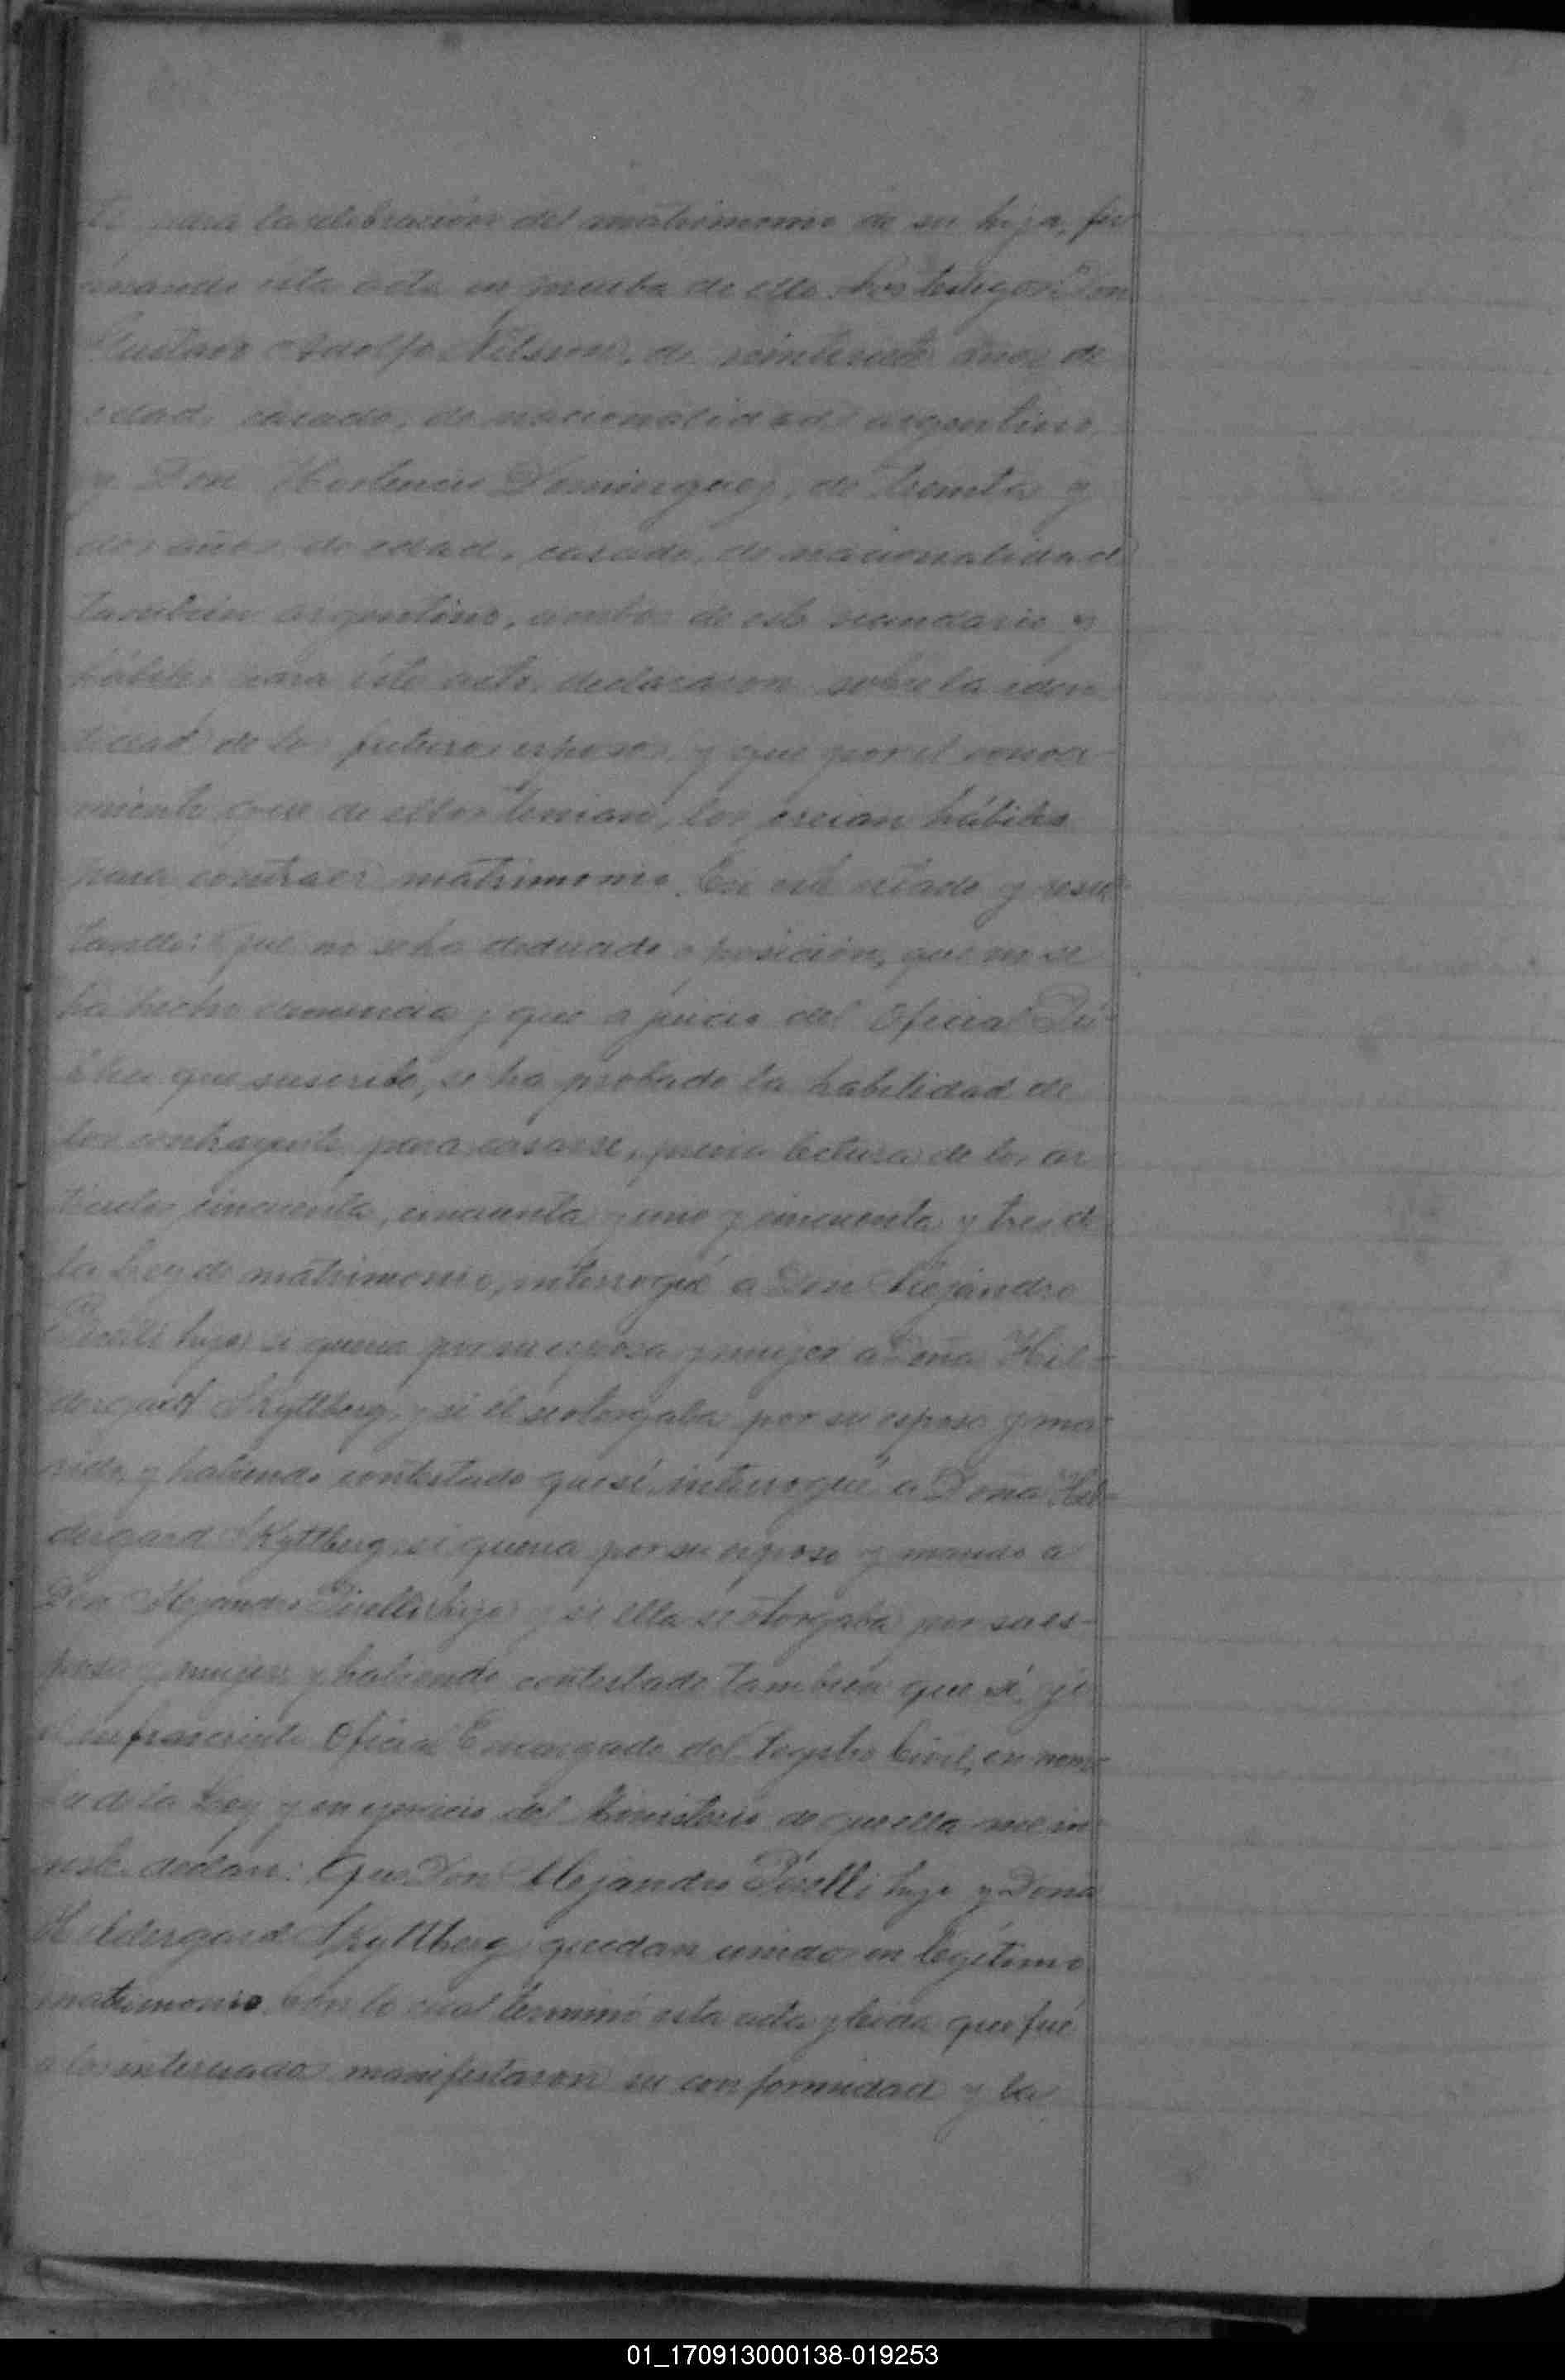 para la celebración del matrimonio de su hija, fir
mando esta acta en prueba de ello. Los testigos: Don
Gustavo Adolfo Nilsson, de veintisiete años de
edad, casado, de nacionalidad argentino
y Don Hortencio Dominguez, de treinta y
dos años de edad, casado, de nacionalidad
también argentino, ambos de este vecindario y
hábiles para éste acto, declararon sobre la iden
tidad de los futuros esposos, y que por el conoci-
miento que de ellos tenian, los creian hábiles
para contraer matrimonio. En este estado y resul
tando: Que no se ha deducido oposición, que no se
ha hecho denuncia y que a juicio del Oficial Pú-
blico que suscribe, se ha probado la habilidad de
los contrayentes para casarse, previa lectura de los ar
tículos cincuenta, cincuenta y uno y cincuenta y tres de
la Ley de matrimonio, interrogué a Don Alejandro
Pirelli hijo, si queria por su esposa y mujer a Doña Hil-
dergard Skyttberg, y si él se otorgaba por su esposo y ma-
rido, y habiendo contestado que sí, interrogué a Doña Hil-
dergard Skyttberg, si queria por su esposo y marido a
Don Alejandro Pirelli hijo y si ella se otorgaba por su es-
posa y mujer, y habiendo contestado también que sí, yo
el infrascripto Oficial Encargado del Registro Civil, en nom-
bre de la Ley y en ejercicio del Ministerio de que ella me in-
viste declaro: Que Don Alejandro Pirelli hijo y Doña
Hildergard Skyttberg quedan unidos en legítimo
matrimonio. Con lo cual terminó esta acta y leida que fué
a los interesados manifestaron su conformidad y la
01_170913000138-019253